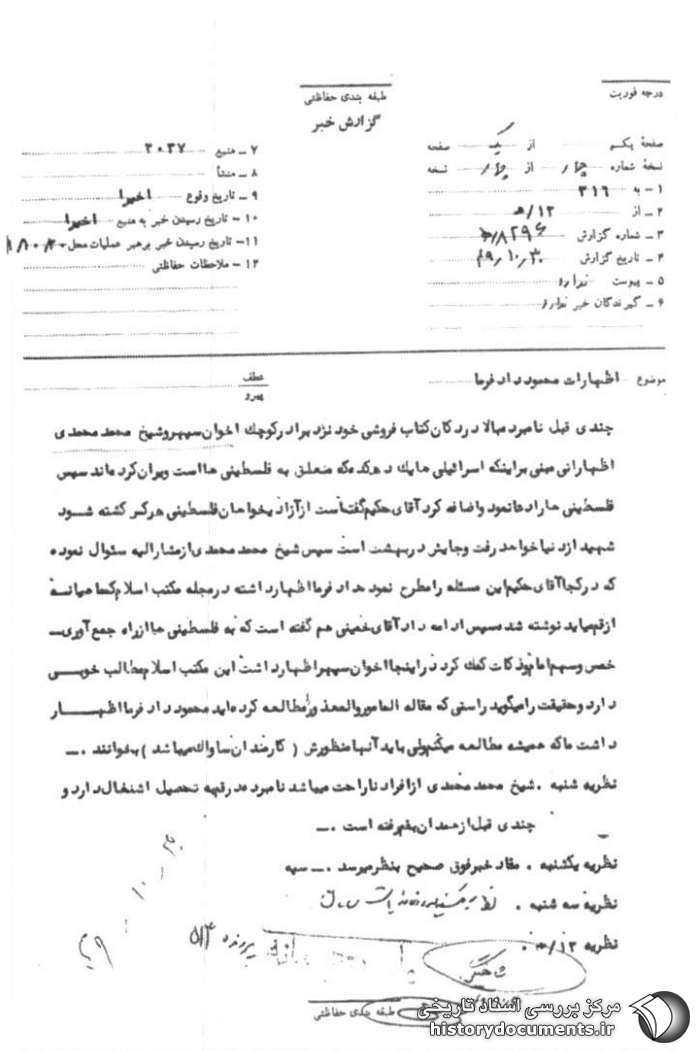 درجه فوریت
طبقه بندی حفاظتی
گزارش خبر
صفحه یکم از یک صفحه
نسخه شماره چهار از چهار نسخه
۱ – به ۳۱۶
۲ – از ۱۲/ﻫ
۳ – شماره گزارش ۸۲۹۶/ﻫ
۴ – تاریخ گزارش ۴۹/۱۰/۳۰
۵ – پیوست ندارد
۶ – گیرندگان خبر ندارد
۷ – منبع ۲۰۳۷
۸ – منشأ
۹ – تاریخ وقوع اخیرا
۱۰ – تاریخ رسیدن خبر به منبع اخیرا
۱۱ – تاریخ رسیدن خبر برهبر عملیات محل
۱۲ – ملاحظات حفاظتی
موضوع اظهارات محمود دادفرما
عطف
پیرو
چندی قبل نامبرده بالا در دکان کتاب فروشی خود نزد برادر کوچک اخوان سپهر و شیخ محمد محمدی
اظهاراتی مبنی براینکه اسرائیلی ها یک دهکده که متعلق به فلسطینی ها است ویران کرده اند سپس
فلسطینی ها را دعا نمود و اضافه کرد آقای حکیم گفته است از آزادیخواهان فلسطینی هر کس کشته شود
شهید از دنیا خواهد رفت و جایش در بهشت است سپس شیخ محمد محمدی از مشارالیه سئوال نموده
که در کجا آقای حکیم این مسئله را مطرح نموده دادفرما اظهار داشته در مجله مکتب اسلام که ماهیانه
از قم میاید نوشته شده سپس ادامه داد آقای خمینی هم گفته است که به فلسطینی ها از راه جمع آوری –
خمس و سهم امام و ذکات کمک کرد در اینجا اخوان سپهر اظهار داشت این مکتب اسلام مطالب خوبی
دارد و حقیقت را میگوید راستی که مقاله المامور والمعذور را مطالعه کرده اید محمود دادفرما اظهار
داشت ما که همیشه مطالعه میکنیم ولی باید آنها منظورش ( کارمندان ساواک میباشد ) بخوانند . –
نظریه شنبه . شیخ محمد محمدی از افراد ناراحت میباشد نامبرده در قم به تحصیل اشتغال دارد و
چندی قبل از همدان بقم رفته است . –
نظریه یکشنبه . مفاد خبر فوق صحیح بنظر میرسد . – سپه
نظریه سه شنبه .
نظریه ۱۲/ﻫ .
پرونده ۵۸۴
۴۹ – ۱۰ – ۳۰
طبقه بندی حفاظتی
مرکز بررسی اسناد تاریخی
historydocuments.ir